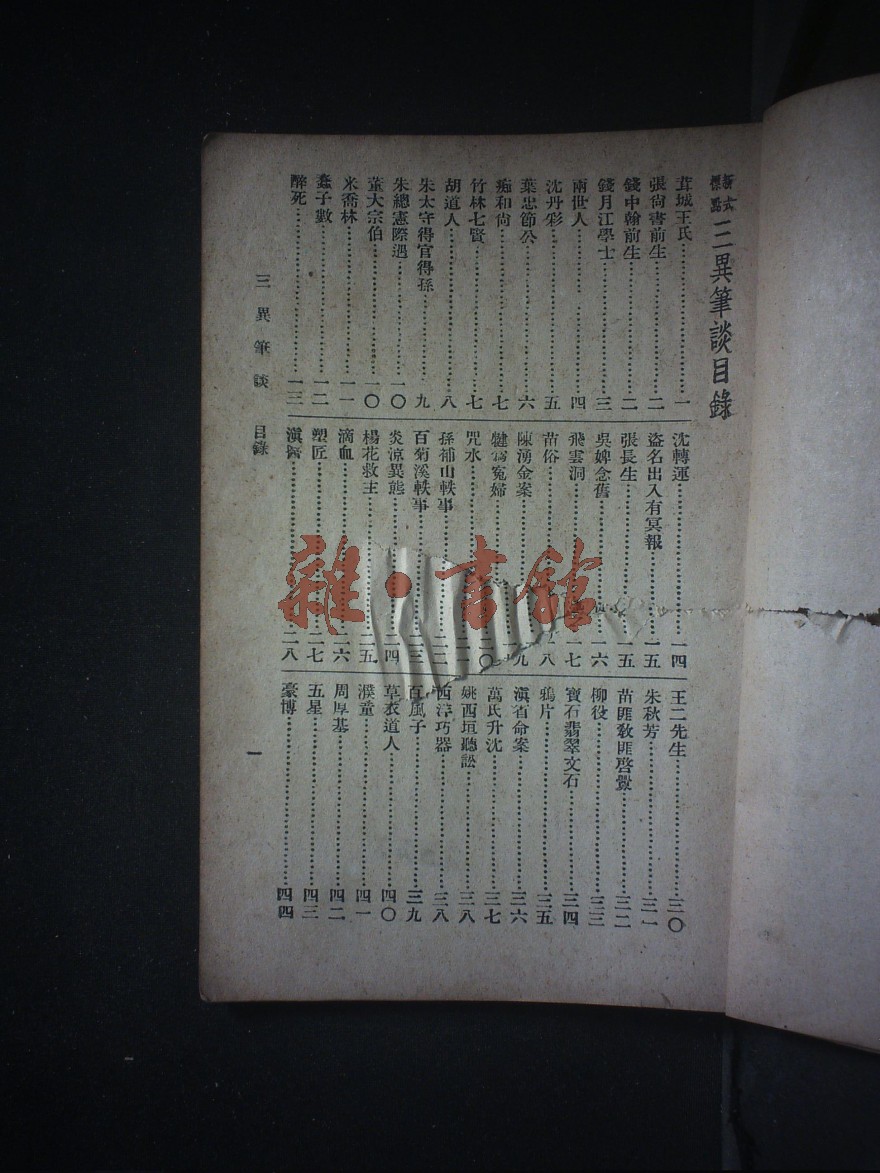 新式標點 三異筆談目錄
茸城王氏……一
張尙書前生……二
錢中翰前生……二
錢月江學士……三
兩世人……四
沈丹彩……五
葉忠節公……六
癡和尙……七
竹林七賢……七
胡道人……八
朱太守得官得孫……九
朱總憲際遇……一〇
董大宗伯……一〇
米喬林……一一
蠢子數……一二
醉死……一三
沈轉運……一四
盜名出入有冥報……一五
張長生……一五
吳婢念舊……一六
飛雲洞……一七
苗俗……一八
陳湧金案……一九
冤婦……一九
咒水……二〇
孫補山軼事……二二
百菊溪軼事……二三
炎涼異態……二四
楊花救主……二五
滴血……二六
塑匠……二七
滇醫……二八
王二先生……三〇
朱秋芳……三一
苗匪敎匪啓釁……三二
柳役……三三
寶石翡翠文石……三四
鴉片……三五
滇省命案……三六
萬氏升沈……三七
姚西垣聽訟……三八
西洋巧器……三八
百風子……三九
草衣道人……四〇
濮童……四一
周厚基……四二
五星……四三
豪博……四四
三異筆談 目錄
一
雜·書館